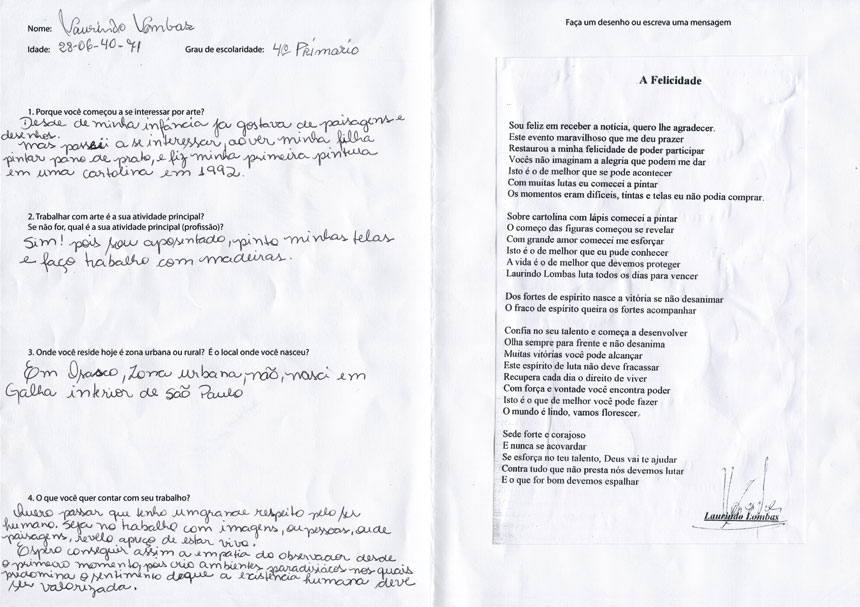 Nome: Laurindo Lombas
Idade: 28-06-40-71 Grau de escolaridade: 4º Primario
1. Porque você começou a se interessar por arte?
Desde de minha infância ja gostava de paisagens e
desenhos.
mas passei a se interessar, ao ver minha filha
pintar pano de prato, e fiz minha primeira pintura
em uma cartolina em 1992.
2. Trabalhar com arte é a sua atividade principal?
Se não for, qual é a sua atividade principal (profissão)?
Sim! pois sou aposentado, pinto minhas telas
e faço trabalho com madeiras.
3. Onde você reside hoje é zona urbana ou rural? É o local onde você nasceu?
Em Osasco, Zona urbana, não, nasci em
Galha interior de São Paulo
4. O que você quer contar com seu trabalho?
Quero passar que tenho um grande respeito pelo ser
humano. Seja no trabalho com imagens, ou pessoas, onde
paisagens, revelo apreço de estar vivo.
Espero conseguir assim a empatia do observador desde
o primeiro momento, pois crio ambientes paradisíacos nos quais
predomina o sentimento de que a existência humana deve
ser valorizada.
Faça um desenho ou escreva uma mensagem
A Felicidade
Sou feliz em receber a notícia, quero lhe agradecer.
Este evento maravilhoso que me deu prazer
Restaurou a minha felicidade de poder participar
Vocês não imaginam a alegria que podem me dar
Isto é o de melhor que se pode acontecer
Com muitas lutas eu comecei a pintar
Os momentos eram difíceis, tintas e telas eu não podia comprar.
Sobre cartolina com lápis comecei a pintar
O começo das figuras começou se revelar
Com grande amor comecei me esforçar
Isto é o de melhor que eu pude conhecer
A vida é o de melhor que devemos proteger
Laurindo Lombas luta todos os dias para vencer
Dos fortes de espírito nasce a vitória se não desanimar
O fraco de espírito queira os fortes acompanhar
Confia no seu talento e começa a desenvolver
Olha sempre para frente e não desanima
Muitas vitórias você pode alcançar
Este espírito de luta não deve fracassar
Recupera cada dia o direito de viver
Com força e vontade você encontra poder
Isto é o que de melhor você pode fazer
O mundo é lindo, vamos florescer.
Sede forte e corajoso
E nunca se acovardar
Se esforça no teu talento, Deus vai te ajudar
Contra tudo que não presta nós devemos lutar
E o que for bom devemos espalhar
Laurindo Lombas